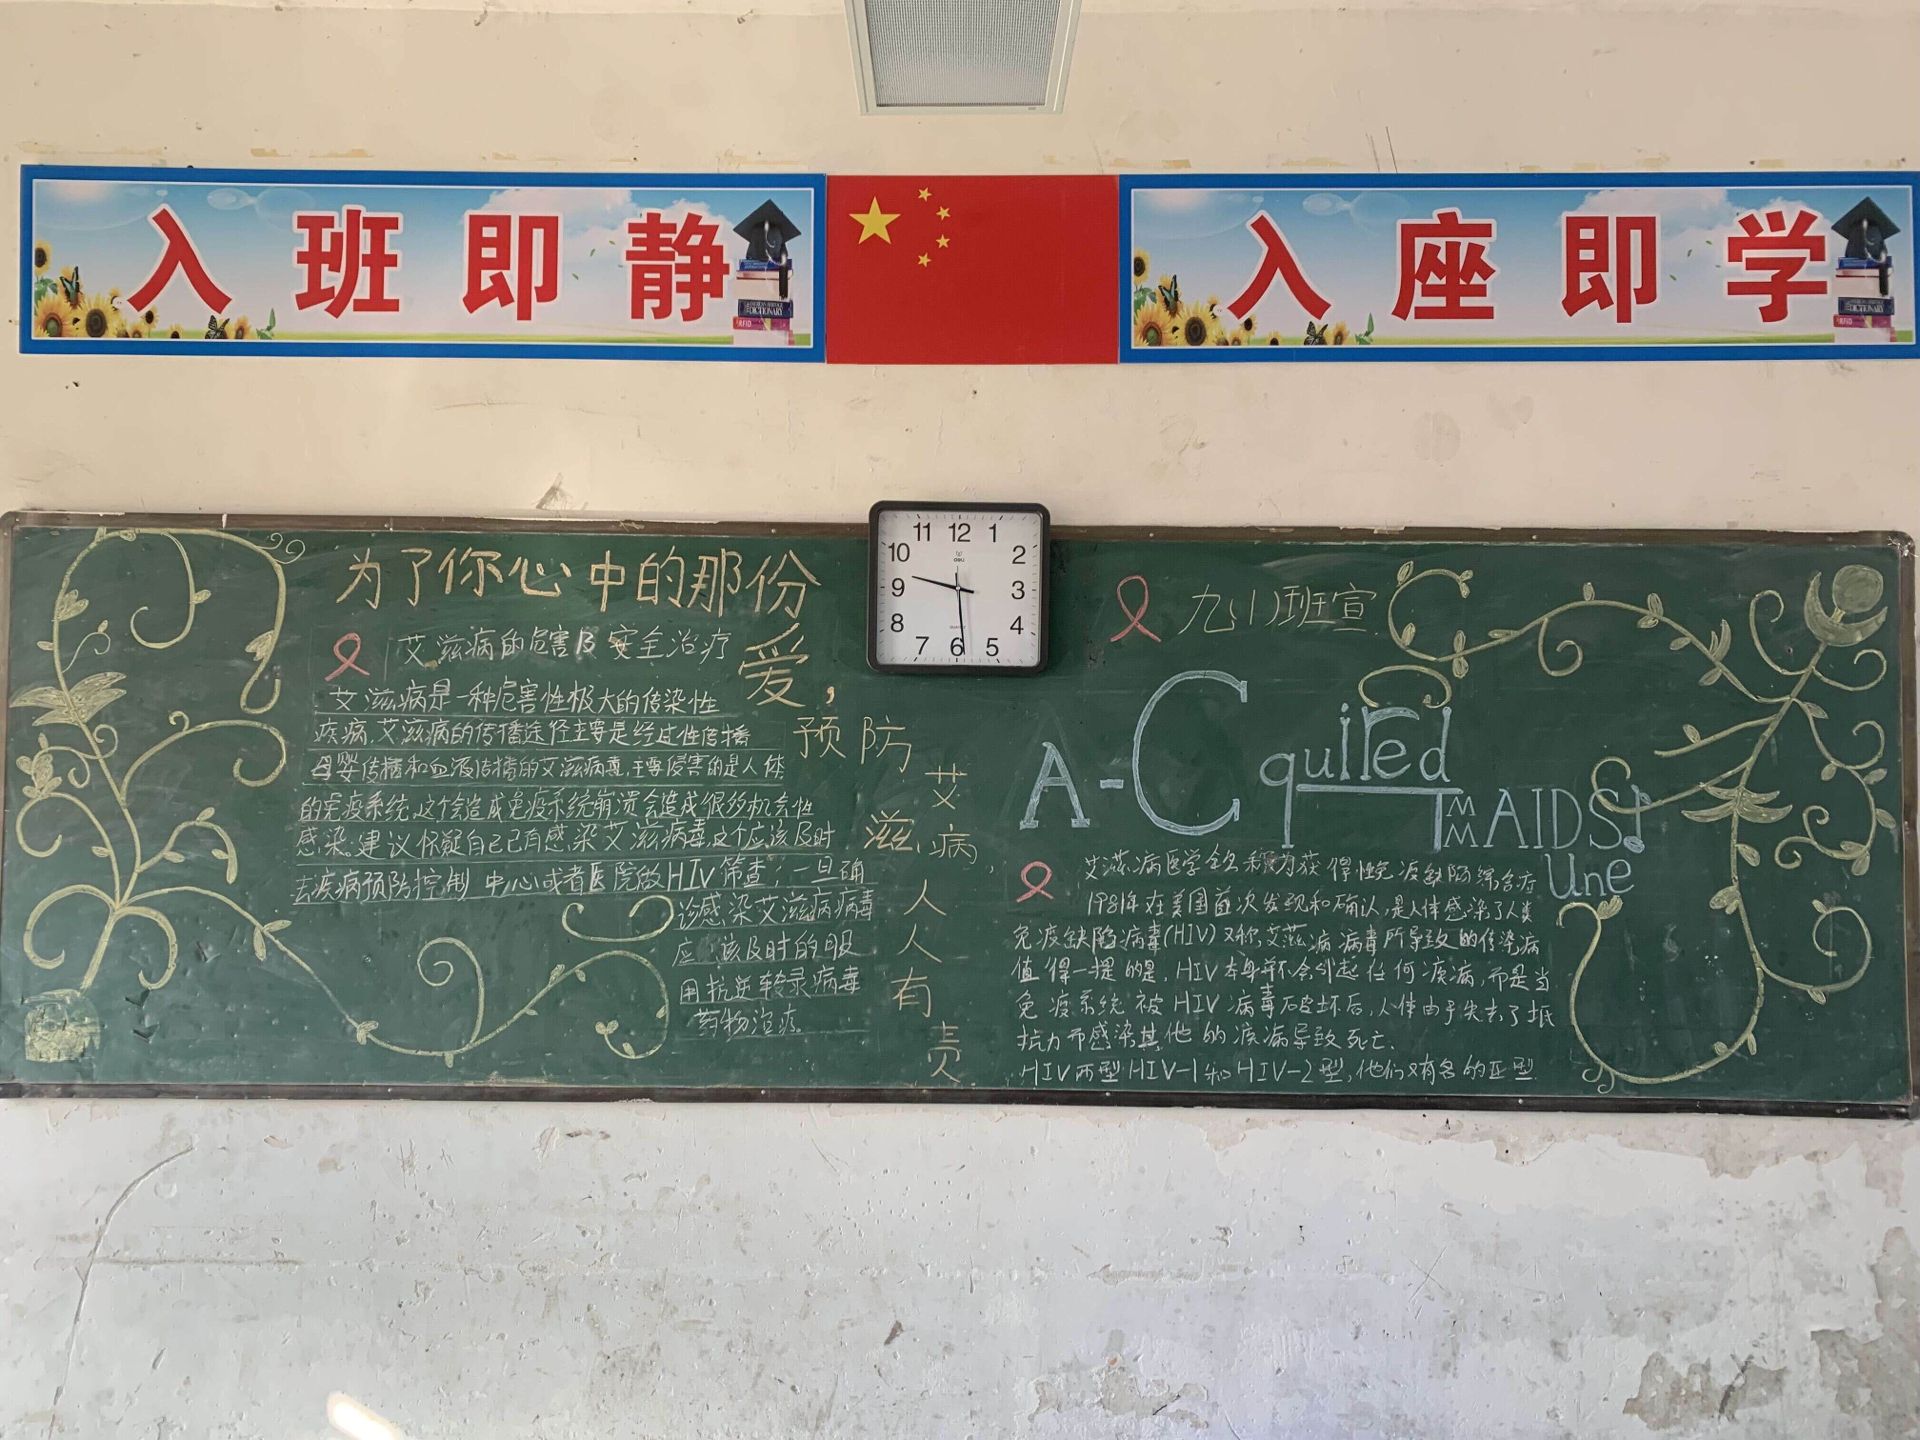 入班即静
入座即学
为了你心中的那份
爱,
预防
艾
滋病,
人
人
有
责
艾滋病的危害及安全治疗
艾滋病是一种危害性极大的传染性
疾病,艾滋病的传播途径主要是经过性传播
母婴传播和血液传播的艾滋病毒,主要侵害的是人体
的免疫系统,这个会造成免疫系统崩溃会造成很多机会性
感染。建议怀疑自己已有感染艾滋病毒,这个应该及时
去疾病预防控制中心或者医院做HIV筛查;一旦确
诊感染艾滋病病毒
应该及时的服
用抗逆转录病毒
药物治疗
11 12 1
10 2
9 3
8 4
7 6 5
九(1)班宣
A-Cquired
AIDS
Une
艾滋病医学全名称为获得性免疫缺陷综合症
1981年在美国首次发现和确认,是人体感染了人类
免疫缺陷病毒(HIV)又称艾滋病病毒所导致的传染病
值得一提的是,HIV本身并不会引起任何疾病,而是当
免疫系统被HIV病毒破坏后,人体由于失去了抵
抗力而感染其他的疾病导致死亡.
HIV两型HIV-1和HIV-2型,他们又有各的亚型